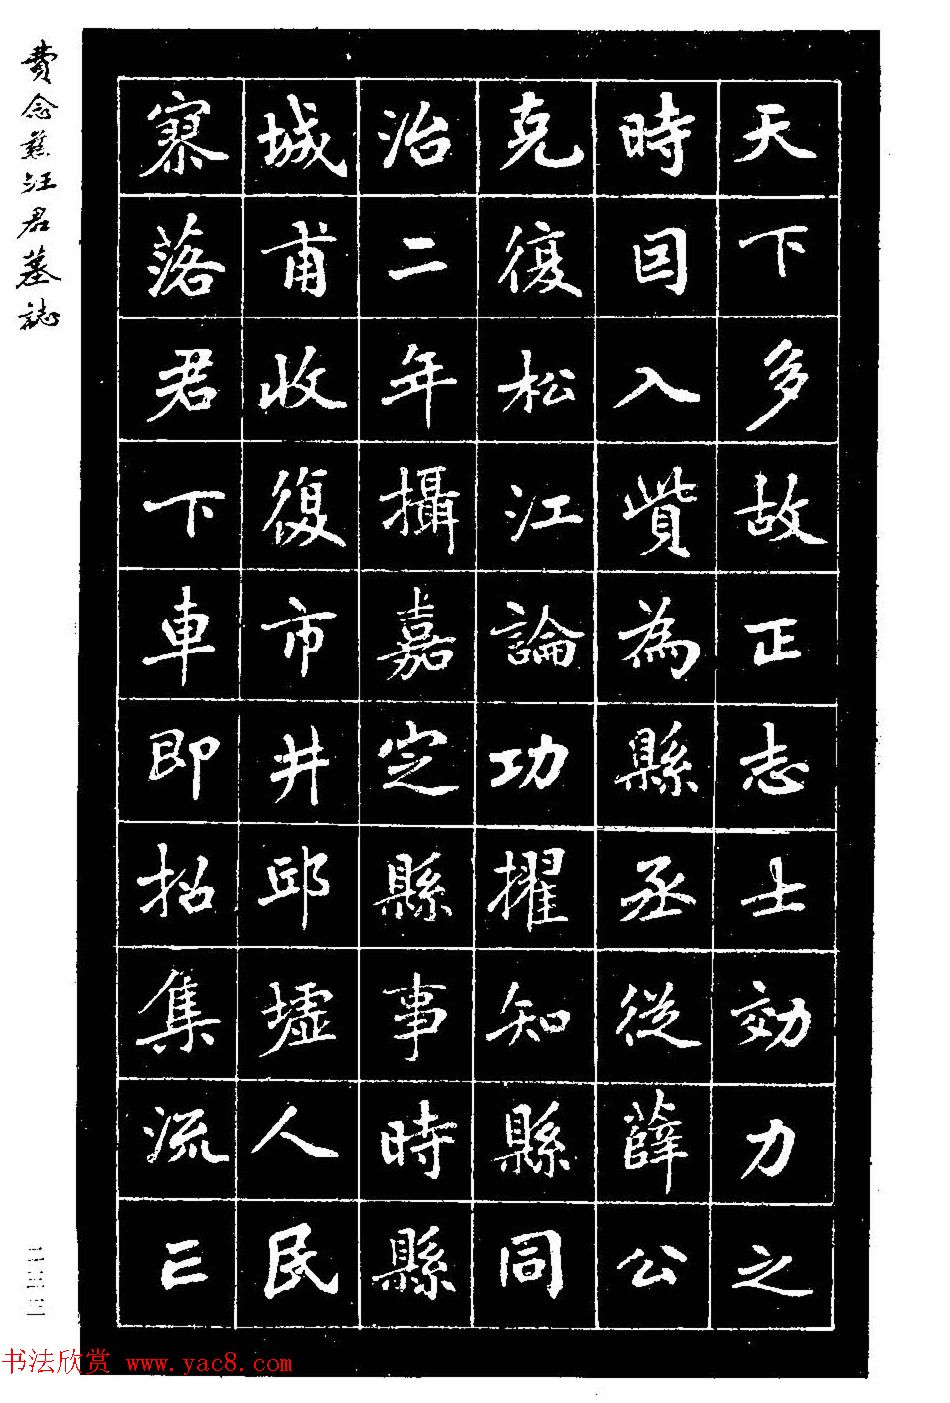 天下多故正志士効力之
時囙入貲為縣丞從薛公
克復松江論功擢知縣同
治二年攝嘉定縣事時縣
城甫收復市井邱墟人民
寥落君下車即招集流亡
費念慈汪君墓誌
二三三
书法欣赏 www.yac8.com